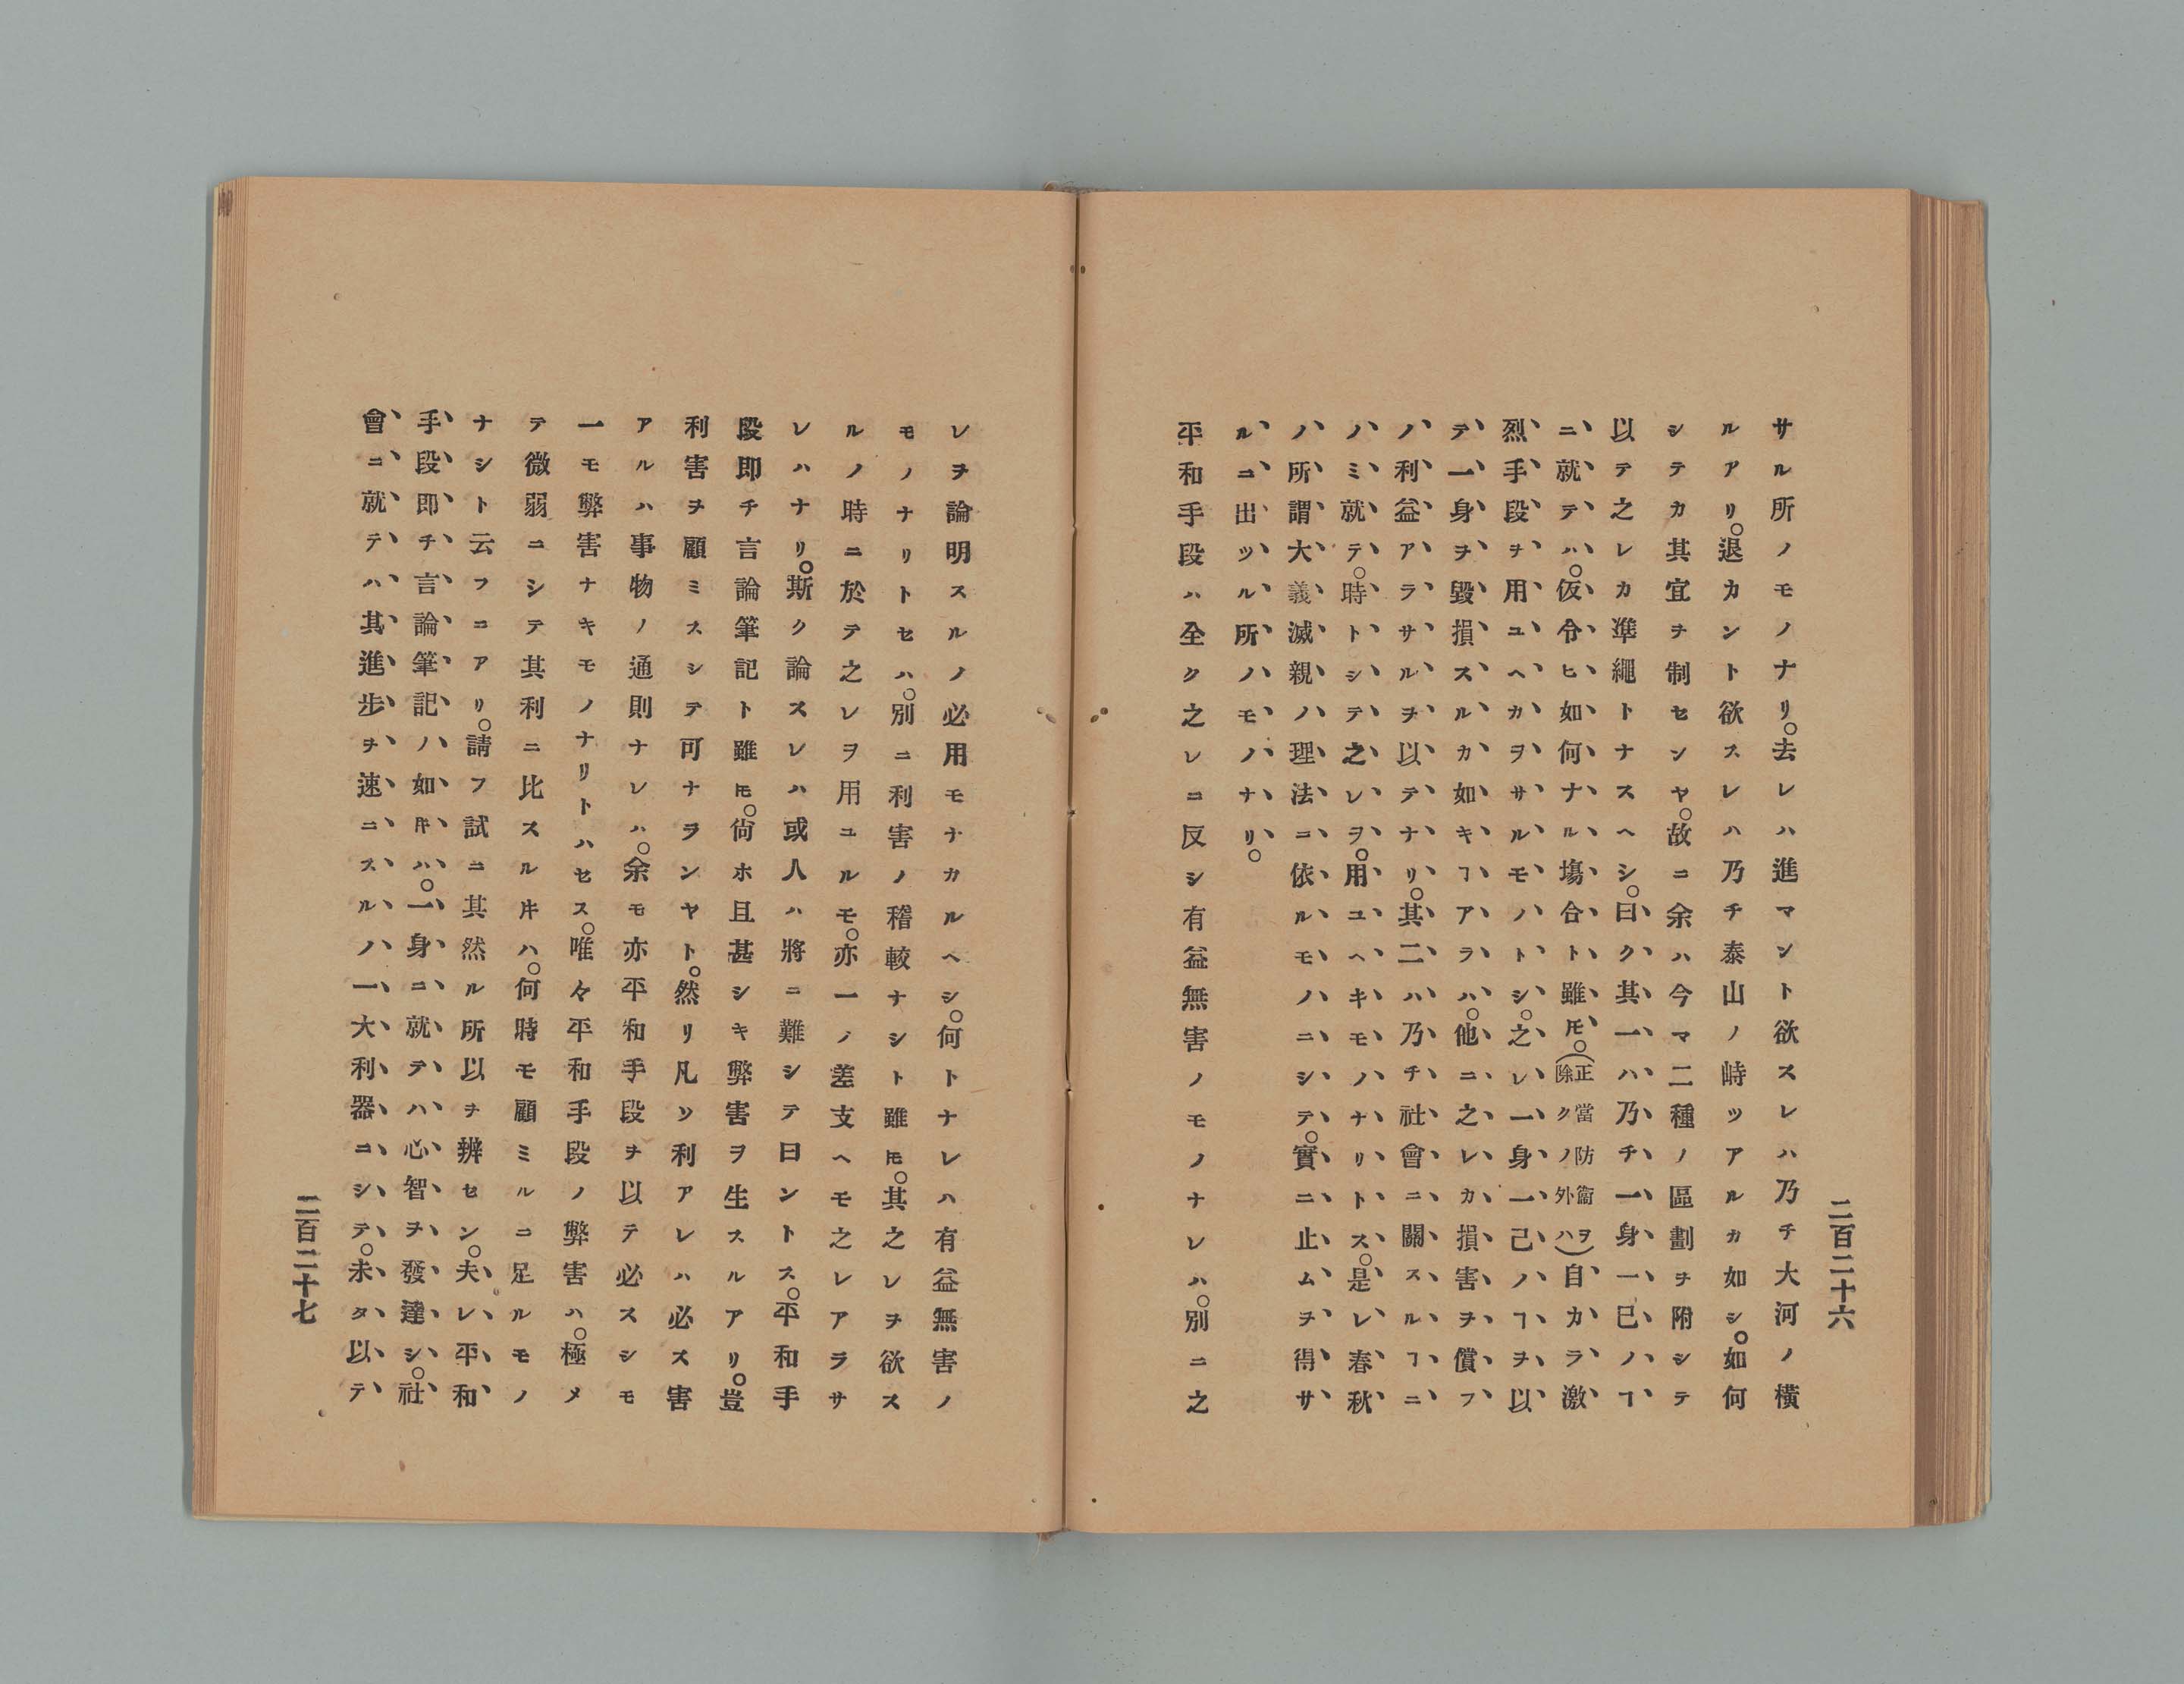 二百二十六
サル所ノモノナリ。去レハ進マント欲スレハ乃チ大河ノ横
ルアリ。退カント欲スレハ乃チ泰山ノ峙ツアルカ如シ。如何
シテカ其宜ヲ制センヤ。故ニ余ハ今マ二種ノ區劃ヲ附シテ
以テ之レカ凖繩トナスヘシ。曰ク其一ハ乃チ一身一己ノヿ
ニ就テハ。仮令ヒ如何ナル塲合ト雖𪜈。(正當防衞ヲ除クノ外ハ)自カラ激
烈手段ヲ用ユヘカヲサルモノトシ。之レ一身一己ノヿヲ以
テ一身ヲ毀損スルカ如キヿアラハ。他ニ之レカ損害ヲ償フ
ノ利益アラサルヲ以テナリ。其二ハ乃チ社會ニ關スルヿニ
ノミ就テ。時トシテ之レヲ。用ユヘキモノナリトス。是レ春秋
ノ所謂大義滅親ノ理法ニ依ルモノニシテ。實ニ止ムヲ得サ
ルコ出ツル所ノモノナリ。
平和手段ハ全ク之レニ反シ有益無害ノモノナレハ。別ニ之
レヲ論明スルノ必用モナカルヘシ。何トナレハ有益無害ノ
モノナリトセハ。別ニ利害ノ稽較ナシト雖𪜈。其之レヲ欲ス
ルノ時ニ於テ之レヲ用ユルモ。亦一ノ差支ヘモ之レアラサ
レハナリ。斯ク論スレハ或人ハ將ニ難シテ曰ントス。平和手
段即チ言論筆記ト雖𪜈。尙ホ且甚シキ弊害ヲ生スルアリ。豈
利害ヲ顧ミスシテ可ナヲンヤト。然リ凡ソ利アレハ必ス害
アルハ事物ノ通則ナレハ。余モ亦平和手段ヲ以テ必スシモ
一モ弊害ナキモノナリトハセス。唯々平和手段ノ弊害ハ。極メ
テ微弱ニシテ其利ニ比スル𪜈ハ。何時モ顧ミルニ足ルモノ
ナシト云フコアリ。請フ試ニ其然ル所以ヲ辨セン。夫レ平和
手段即チ言論筆記ノ如𪜈ハ。一身ニ就テハ心智ヲ發達シ。社
會ニ就テハ其進步ヲ速ニスルノ一大利器ニシテ。未タ以テ
二百二十七